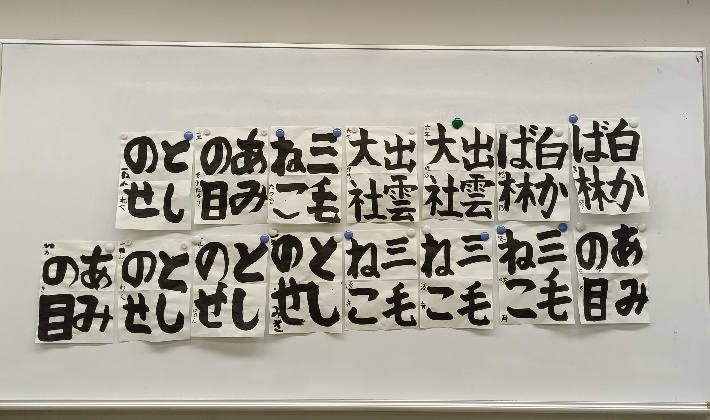 白か
ば林
白か
ば林
出雲
大社
出雲
大社
三毛
ねこ
あみ
の目
とし
のせ
あみ
の目
三毛
ねこ
三毛
ねこ
三毛
ねこ
とし
のせ
とし
のせ
とし
のせ
あみ
の目